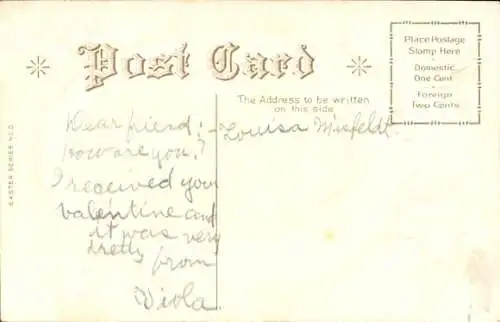 Post Card
Place Postage
Stamp Here
Domestic
One Cent
Foreign
Two Cents
The Address to be written
on this side
EASTER SERIES NO.
Dear friend:-
How are you?
I received your
valentine and
it was very
pretty from
Viola.
Louisa